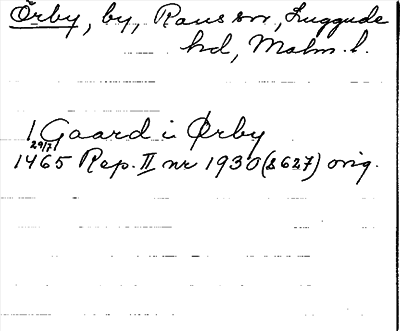 Örby, by, Raus sn, Luggude
hd, Malm. l.
1 Gaard i Ørby
29/7
1465 Rep. II nr 1930 (8627) orig.